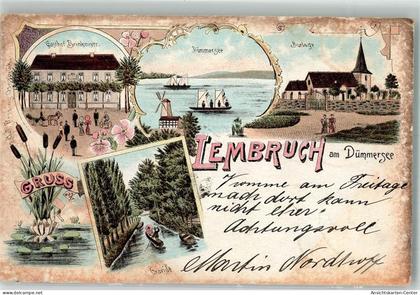 Gasthof Brinkmann
Dümmersee
GRUSS
LEMBRUCH am Dümmersee
Komme am Freitage
nach dort kann
nicht eher.
Achtungsvoll
Martin Nordhoff
oldthing.net
Ansichtskarten-Center